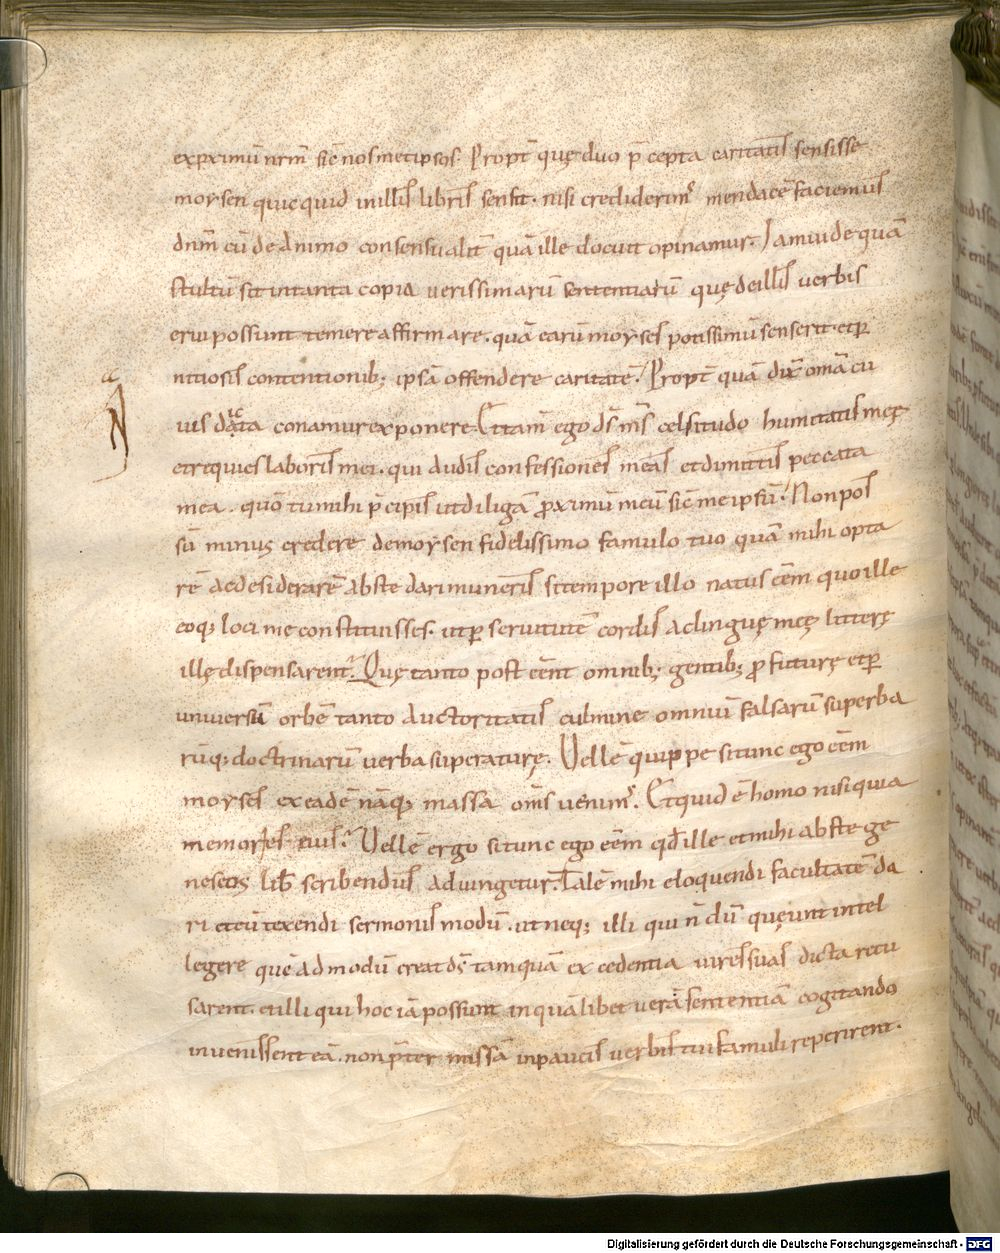 exp̄ximū nr̄m̄ sic̄ nosmetipsos. Propt̄ quę duo p̄cepta caritatis sensisse
moysen quicquid inillis libris sensit. nisi crediderim᷒ mendacē faciemus
dnm̄ cū deanimo conseruialit̄ quā ille docuit opinamur. Iamuide quā
stultū sit intanta copia uerissimarū sententiarū quę deillis uerbis
erui possunt temere affirmare. quā earū moyses potissimū senserit. et ꝑ
nitiosis contentionib; ipsā offendere caritatē. Propt̄ quā dix̄ om̄ā cu
a
N
ius dicta conamur exponere. Et tam̄ ego dś m̄s celsitudo humilitatis meę
et requies laboris mei. qui audis confessiones meas et dimittis peccata
mea. quō tu mihi p̄cipis ut diligā p̄ximū meū sic̄ me ipsū. Non pos
sū minus credere de moysen fidelissimo famulo tuo quā mihi opta
rē ac desiderarē abste dari muneris si tempore illo natus eēm quo ille
eoq; loci me constituisses. ut ꝑ seruitutē cordis ac linguę meę litterę
illę dispensarent᷒. Quę tanto post eēnt omnib; gentib; p̄futurę et ꝑ
uniuersū orbē tanto auctoritatis culmine omniū falsarū superba
rūq; doctrinarū uerba superaturę. Uellē quippe si tunc ego eēm
moyses ex eadē nāq; massa om̄s uenim᷒. Et quid ē homo nisi quia
memor es eius. Uellē ergo si tunc ego eēm qđ ille et mihi abste ge
neseos lib̄ scribendus adiungetur. Talē mihi eloquendi facultatē da
ri et eū texendi sermonis modū. ut neq; illi qui n̄dū queunt intel
legere quēadmodū creat dś tamquā excedentia uires suas dicta recu
sarent. et illi qui hoc iā possunt in quālibet uerā sententiā cogitando
inuenissent eā. non p̄ter missā in paucis uerbis tui famuli reperirent.
Digitalisierung gefördert durch die Deutsche Forschungsgemeinschaft - DFG